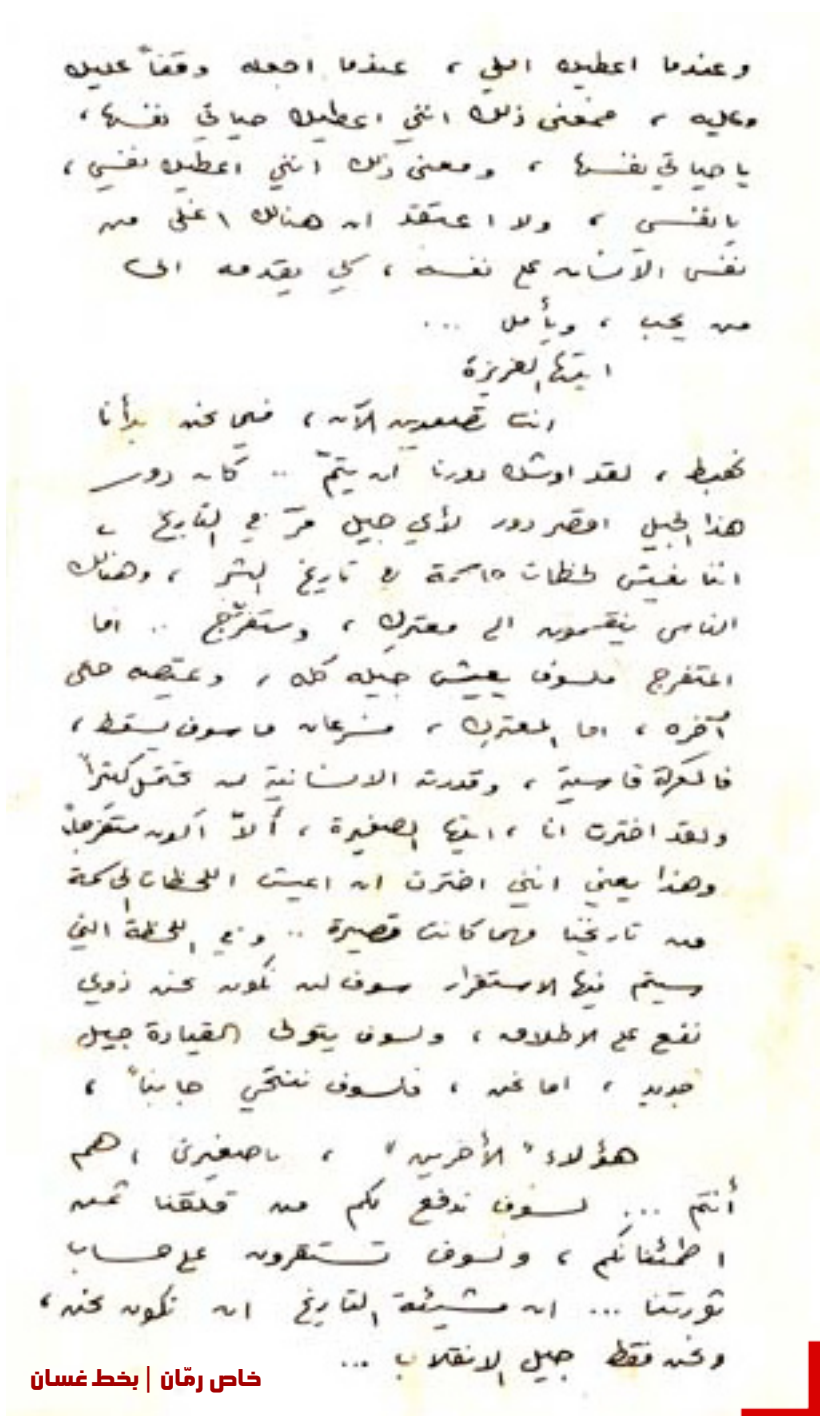 وعندما اعطيك املي ، عندما اجعله وقفاً عليك
وعليه ، فمعنى ذلك انني اعطيك حياتي نفسها ،
يا حياتي نفسها ، ومعنى ذلك انني اعطيك نفسي ،
يا نفسي ، ولا اعتقد ان هنالك اغلى من
نفس الانسان على نفسه ، كي يقدمه الى
من يحب ، ويأمل ...
ايتها العزيزة
انت تصعدين الآن ، فيما نحن بدأنا
نهبط ، لقد اوشك دورنا ان يتمّ .. كان دور
هذا الجيل اقصر دور لأي جيل مرّ في التاريخ ،
اننا نعيش لحظات حاسمة في تاريخ البشر ، وهنالك
الناس ينقسمون الى معترك ، ومتفرّج .. اما
المتفرج فلسوف يعيش جيله كله ، ويمتصه حتى
آخره ، اما المعترك ، فسرعان ما سوف يسقط ،
فالمعركة قاسية ، وقدرته الانسانية لن تحتمل كثيراً
ولقد اخترت انا ، ايتها الصغيرة ، ألاّ أكون متفرجاً
وهذا يعني انني اخترت ان اعيش اللحظات الحاسمة
من تاريخنا مهما كانت قصيرة .. وفي اللحظة التي
سيتم فيها الاستقرار سوف لن نكون نحن ذوي
نفع على الاطلاق ، ولسوف يتولى القيادة جيل
جديد ، اما نحن ، فلسوف ننتحي جانباً ،
هؤلاء " الأخرين " ، يا صغيرتي ، هم
أنتم ... لسوف ندفع لكم من قلقنا ثمن
اطمئنانكم ، ولسوف تستقرون على حساب
ثورتنا ... ان مشيئة التاريخ ان نكون نحن ،
ونحن فقط جيل الانقلاب ...
خاص رمّان | بخط غسان